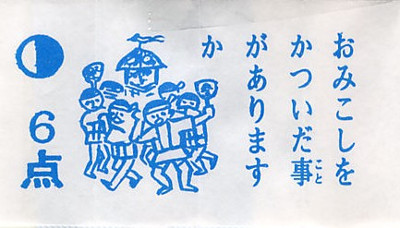 おみこしを
かついだ事こと
があります
か
6点